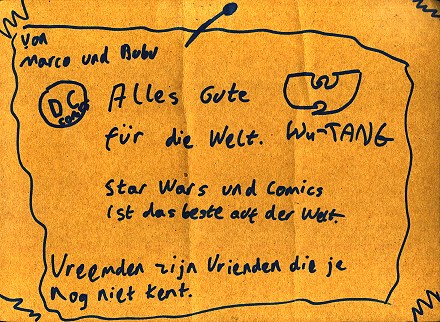 von
Marco und Bubu
DC
comics
Alles Gute
für die Welt.
Wu-TANG
Star Wars und Comics
ist das beste auf der Welt.
Vreemden zijn Vrienden die je
nog niet kent.